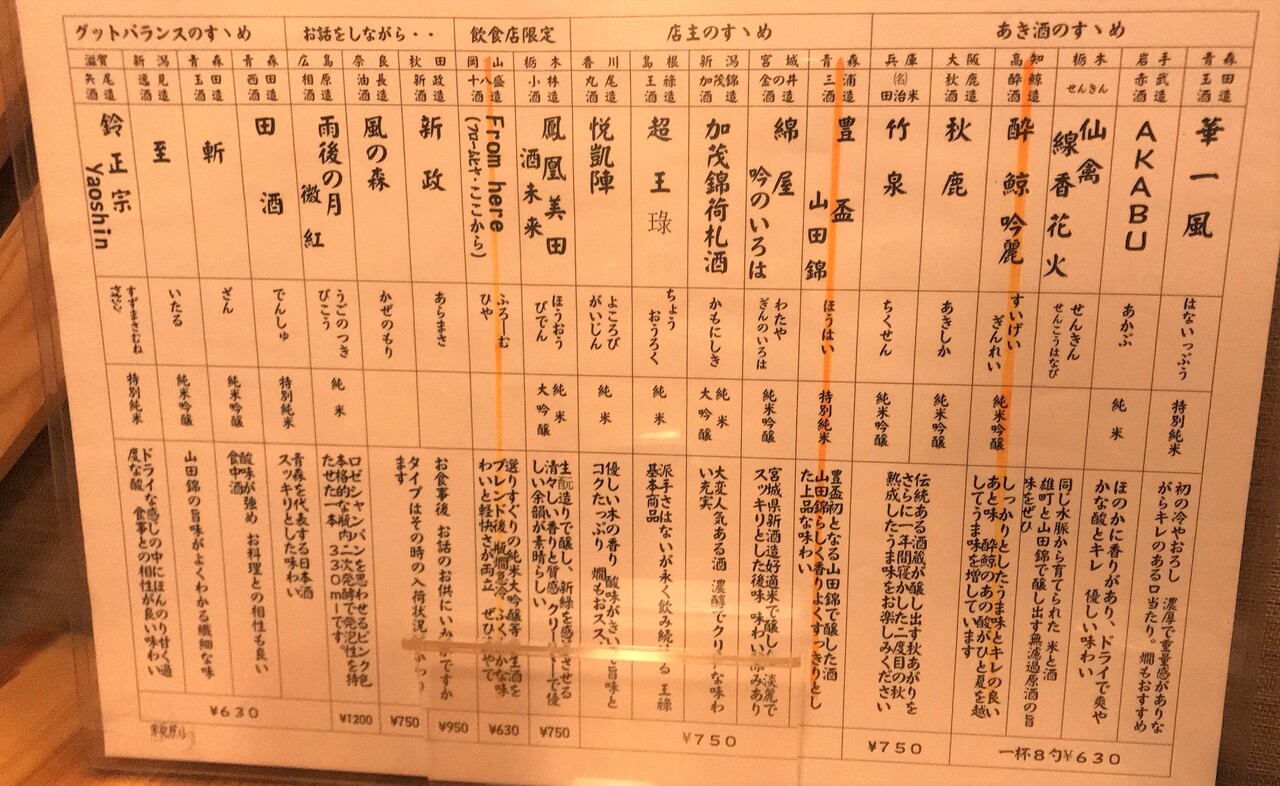 あき酒のすゝめ
青森
玉田酒造
華一風
はないっぷう
特別純米
初の冷やおろし 濃厚で重量感がありな
がらキレのある口当たり。燗もおすすめ
岩手
赤武酒造
AKABU
あかぶ
純米
ほのかに香りがあり、ドライで爽や
かな酸とキレ 優しい味わい
栃木
せんきん
仙禽
線香花火
せんきん
せんこうはなび
同じ水脈から育てられた 米と酒
雄町と山田錦で醸し出す無濾過原酒の旨
味をぜひ
高知
酔鯨酒造
酔鯨 吟麗
すいげい
ぎんれい
純米吟醸
しっかりとしたうま味とキレの良い
あと味 酔鯨のあの酸がひと夏を越
してうま味を増しています
一杯8勺¥630
大阪
秋鹿酒造
秋鹿
あきしか
純米吟醸
兵庫
㈴田治米
竹泉
ちくせん
純米吟醸
伝統ある酒蔵が醸し出す秋あがりを
さらに一年間寝かした二度目の秋
熟成したうま味をお楽しみください
¥750
店主のすゝめ
青森
三浦酒造
豊盃
山田錦
ほうはい
特別純米
豊盃初となる山田錦で醸した酒
山田錦らしく香りよくすっきりとし
た上品な味わい
宮城
金の井酒造
綿屋
吟のいろは
わたや
ぎんのいろは
純米吟醸
宮城県新酒造好適米で醸し 淡麗で
スッキリとした後味 味わい深みあり
新潟
加茂錦酒造
加茂錦荷札酒
かもにしき
純米
大吟醸
大変人気ある酒 濃醇でクリアな味わ
い充実
島根
王祿酒造
超王琭
ちょう
おうろく
純米
派手さはないが永く飲み続ける 王祿
基本商品
香川
丸尾酒造
悦凱陣
よころび
がいじん
純米
優しい木の香り 酸味がきい 旨味と
コクたっぷり 燗もおススメ
¥750
飲食店限定
栃木
小林酒造
鳳凰美田
酒未来
ほうおう
びでん
純米
大吟醸
生酛造りで醸し、新緑を感じさせる
清々しい香りと質感 クリーミーで優
しい余韻が素晴らしい
¥750
岡山
十八盛酒造
From here
(フロームヒヤ・ここから)
ふろーむ
ひや
選りすぐりの純米大吟醸等 生酒を
ブレンド後 瓶燗急冷 ふくよかな味
わいと軽快さが両立 ぜひ冷やで
¥630
お話をしながら・・
秋田
新政酒造
新政
あらまさ
お食事後 お話のお供にいかがですか
タイプはその時の入荷状況
ます
¥950
奈良
油長酒造
風の森
かぜのもり
¥750
広島
相原酒造
雨後の月
微紅
うごのつき
びこう
純米
ロゼシャンパンを思わせるピンク色
本格的な瓶内二次発酵で発泡性を持
たせた一本 330mlです
¥1200
グットバランスのすゝめ
青森
西田酒造
田酒
でんしゅ
特別純米
青森を代表する日本酒
スッキリとした味わい
青森
玉田酒造
斬
ざん
純米吟醸
酸味が強め お料理との相性も良い
食中酒
新潟
逸見酒造
至
いたる
純米吟醸
山田錦の旨味がよくわかる繊細な味
滋賀
矢尾酒造
鈴正宗
yaoshin
すずまさむね
特別純米
ドライな感じの中にほんのり甘く適
度な酸 食事との相性が良い味わい
¥630